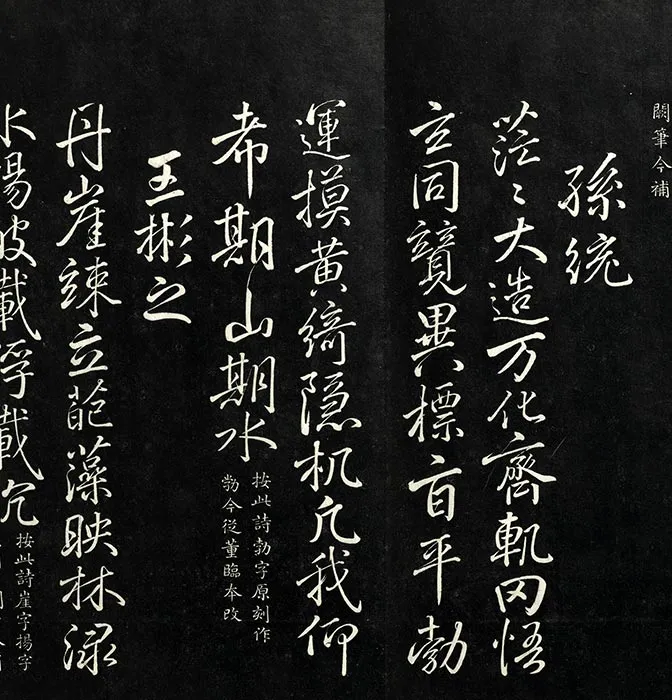 闕筆今補
孫統
茫〻大造万化齊軌罔悟
玄同競異標旨平勃
運摸黃綺隐机凡我仰
希期山期水
按此詩勃字原刻作
今從董臨本改
王彬之
丹崖竦立葩藻映林渌
水揚波載浮載沉
按此詩崖字揚字